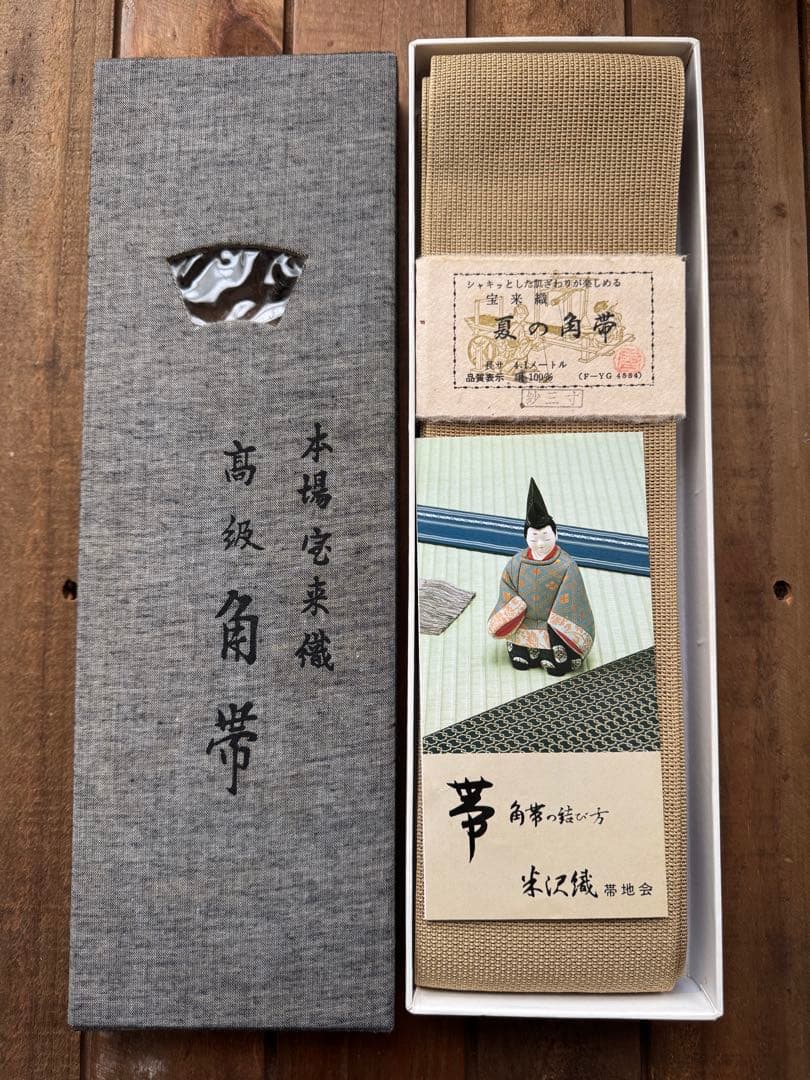 本場宝来織
高級
角帯
シャキッとした肌ざわりが楽しめる
宝来織
夏の角帯
長サ 4.1メートル
品質表示 絹100%
(F-YG 4554)
紗三寸
帯
角帯の結び方
米沢織 帯地会